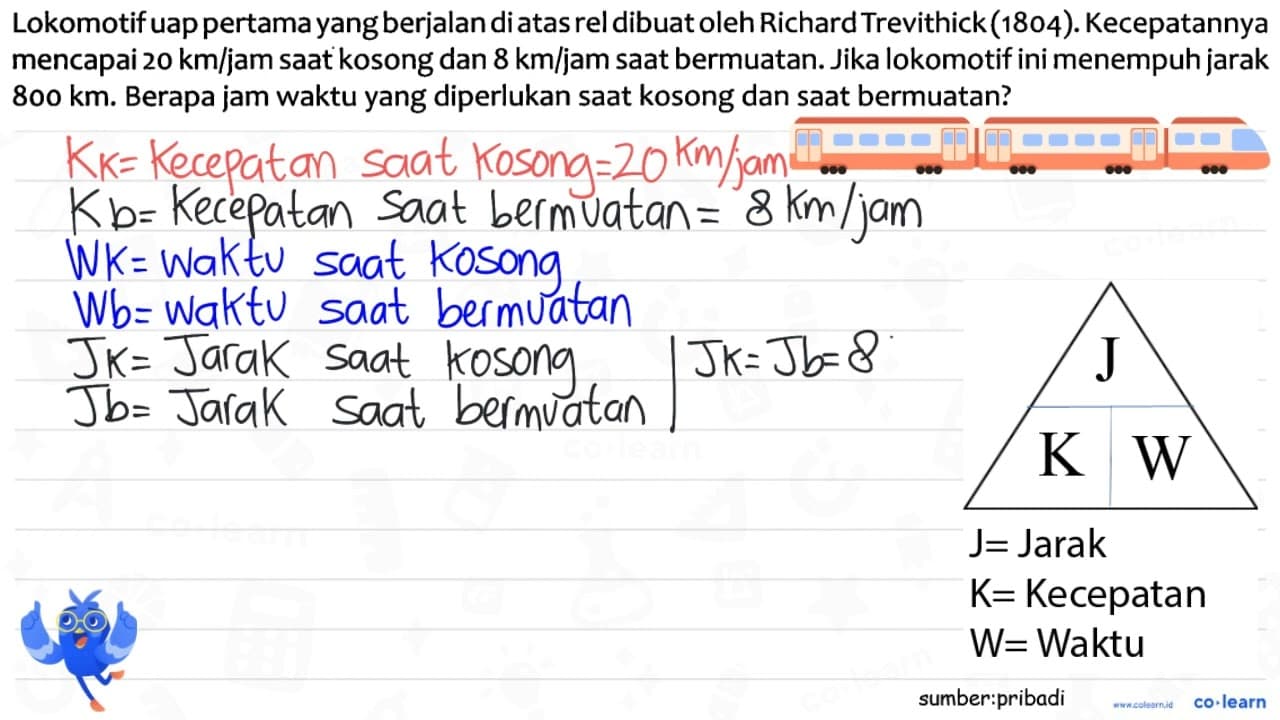 Lokomotif uap pertama yang berjalan di atas rel dibuat oleh Richard Trevithick (1804). Kecepatannya
mencapai 20 km/jam saat kosong dan 8 km/jam saat bermuatan. Jika lokomotif ini menempuh jarak
800 km. Berapa jam waktu yang diperlukan saat kosong dan saat bermuatan?
Kk= Kecepatan saat kosong=20 Km/jam
Kb= Kecepatan saat bermuatan= 8 Km/jam
Wk= waktu saat Kosong
Wb= waktu saat bermuatan
Jk= Jarak saat kosong
Jb= Jarak saat bermuatan
Jk= Jb= 8
J
K W
J= Jarak
K= Kecepatan
W= Waktu
sumber:pribadi
www.colearn.id co·learn